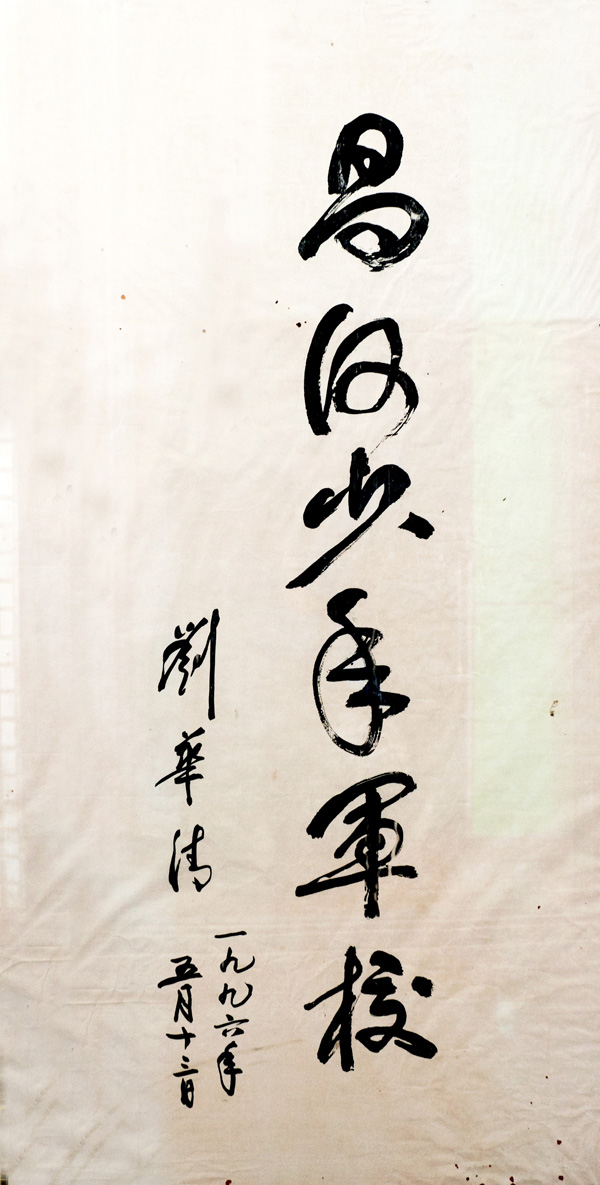 昌河少年軍校
劉華清
一九九六年
五月十三日